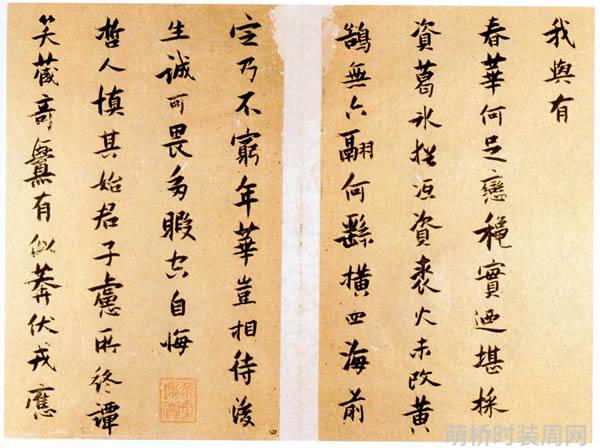 我與有
春華何足戀穠實迺堪採
資葛冰沍資裘火未改黃
鵠無六翮何繇橫四海前
定乃不窮年華豈相待後
生誠可畏多暇空自悔
哲人慎其始君子慮所終譚
笑藏奇釁有似莽伏戎應
四
萌桥时装周网